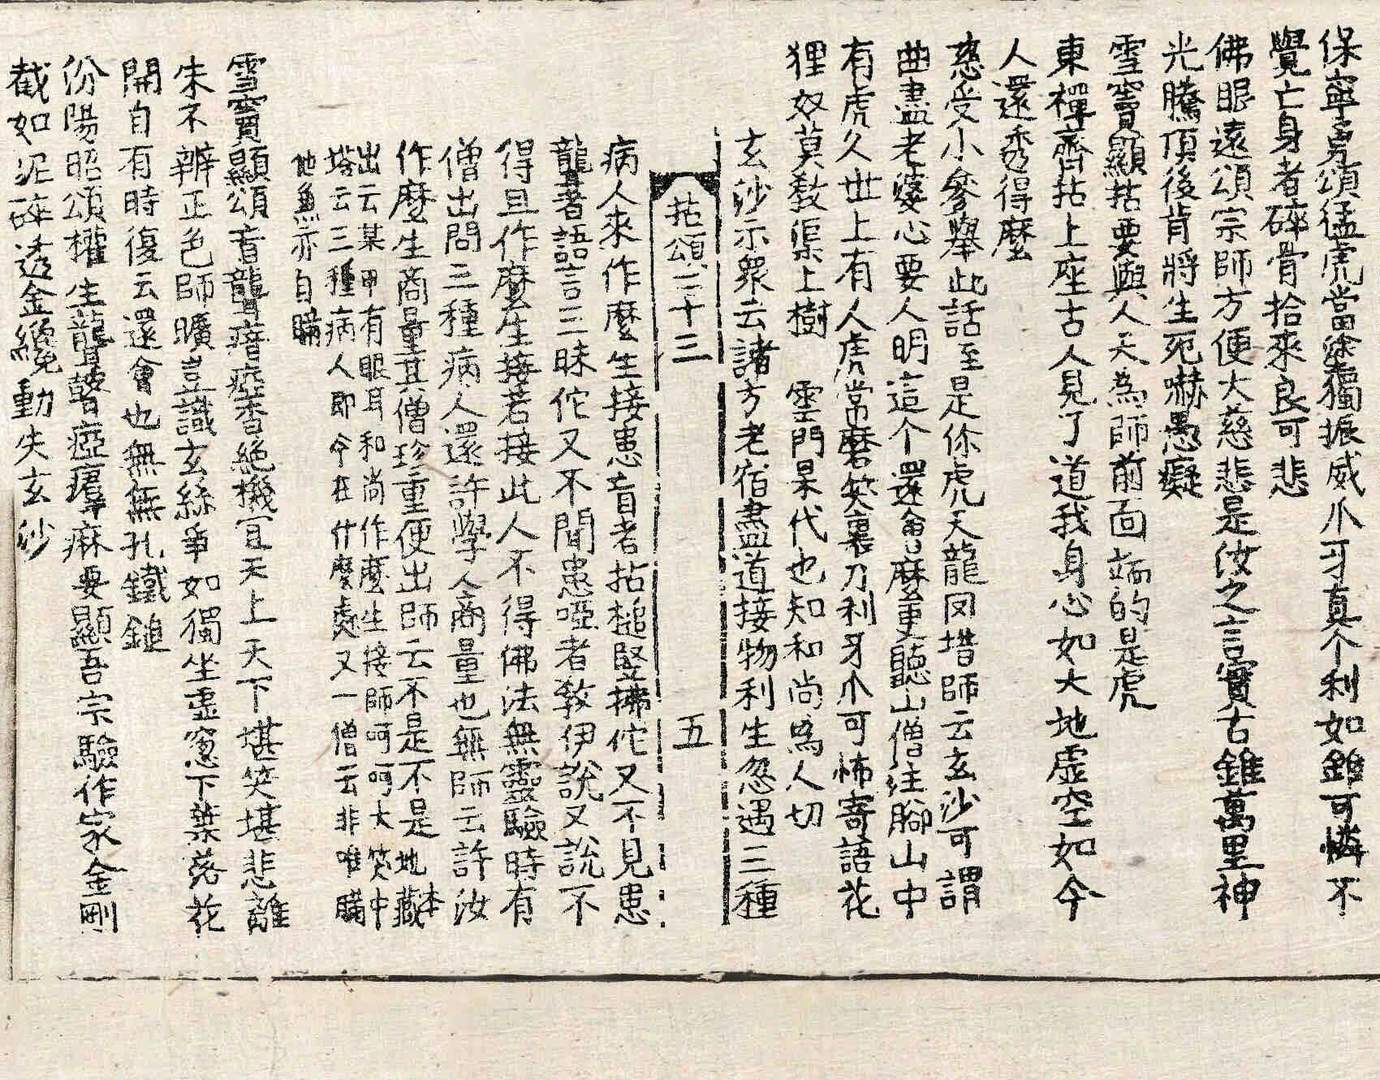 保寧勇頌猛虎當途獨振威爪牙真个利如錐可憐不
覺亡身者碎骨拾來良可悲
佛眼遠頌宗師方便大慈悲是汝之言實古錐萬里神
光騰頂後肯將生死嚇愚癡
雪竇顯拈要與人天為師前面端的是虎
東禪齊拈上座古人見了道我身心如大地虛空如今
人還透得麼
慈受小參舉此話至是你虎天龍図塔師云玄沙可謂
曲盡老婆心要人明這个還會麼更聽山僧注腳山中
有虎久世上有人虎常磨笑裏刀利牙爪可怖寄語花
狸奴莫教渠上樹　雲門杲代也知和尚為人切
玄沙示衆云諸方老宿盡道接物利生忽遇三種
拈頌二十三　五
病人來作麼生接患盲者拈槌竪拂佗又不見患
聾者語言三昧佗又不聞患啞者教伊說又說不
得且作麼生接若接此人不得佛法無靈驗時有
僧出問三種病人還許學人商量也無師云許汝
作麼生商量其僧珍重便出師云不是不是地藏本
出云某甲有眼耳和尚作麼生接師呵呵大笑中
塔云三種病人即今在什麼處又一僧云非唯瞞
他兼亦自瞞
雪竇顯頌盲聾瘖瘂杳絶機宜天上天下堪笑堪悲離
朱不辨正色師曠豈識玄絲爭如獨坐虛窓下葉落花
開自有時復云還會也無無孔鐵鎚
汾陽昭頌權生聾瞽瘂羣麻要顯吾宗驗作家金剛
截如泥碎透金纔動失玄沙